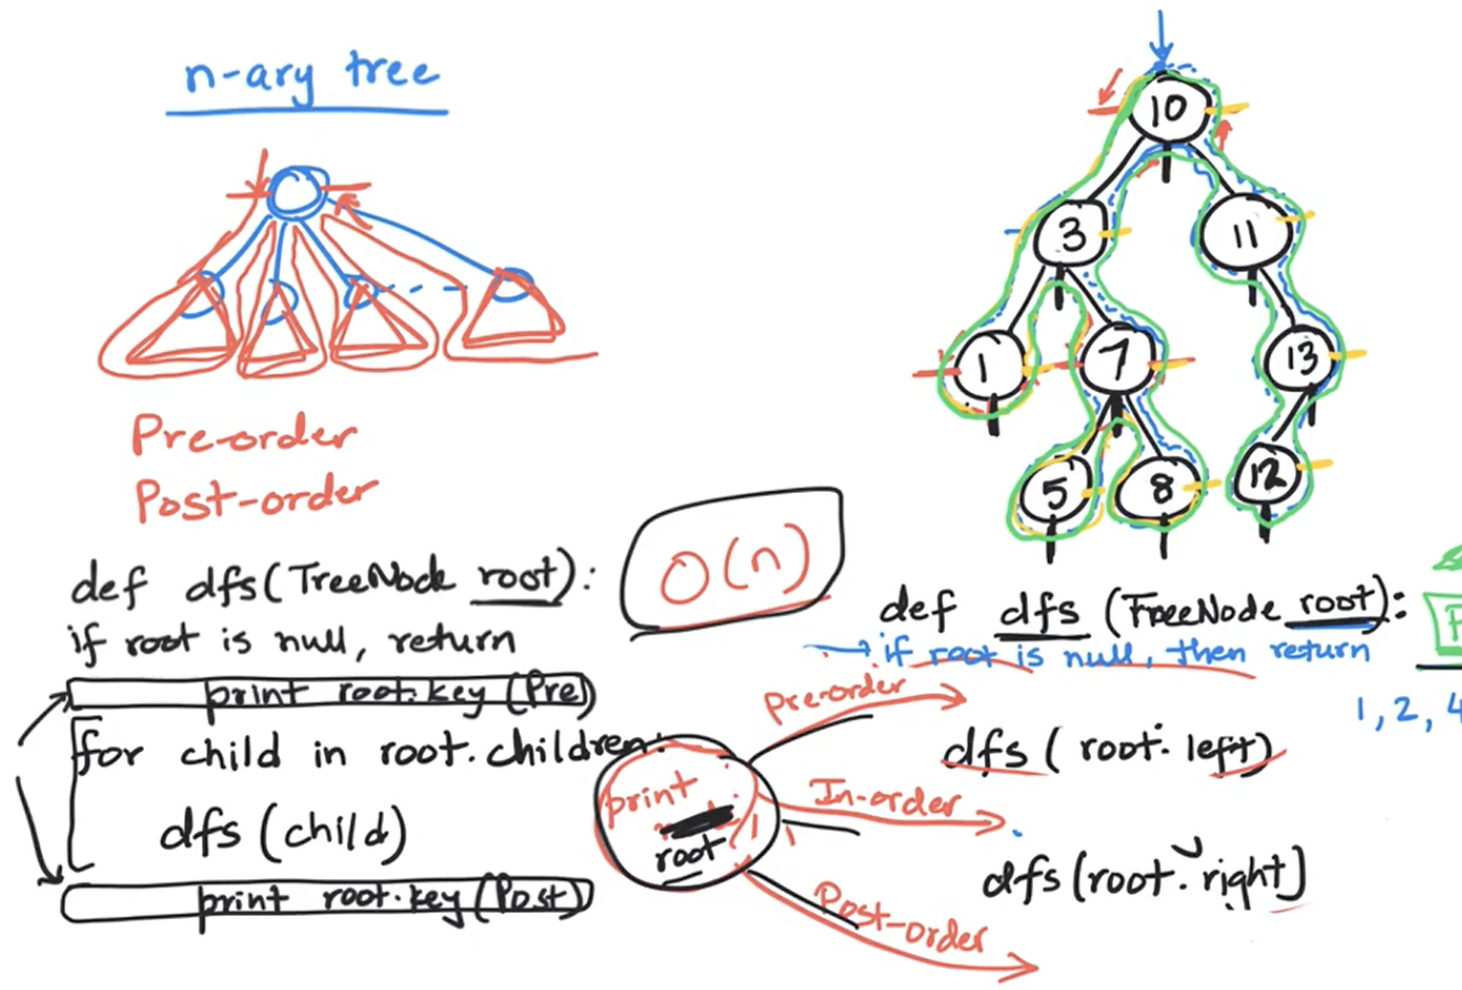 n-ary tree
Pre-order
Post-order
def dfs(TreeNode root):
if root is null, return
print root.key (Pre)
for child in root.children:
dfs (child)
print root.key (Post)
O(n)
10
3
11
1
7
13
5
8
12
def dfs (TreeNode root):
if root is null, then return
1, 2, 4
Pre-order
dfs ( root. left)
print
root
In-order
dfs (root. right)
Post-order